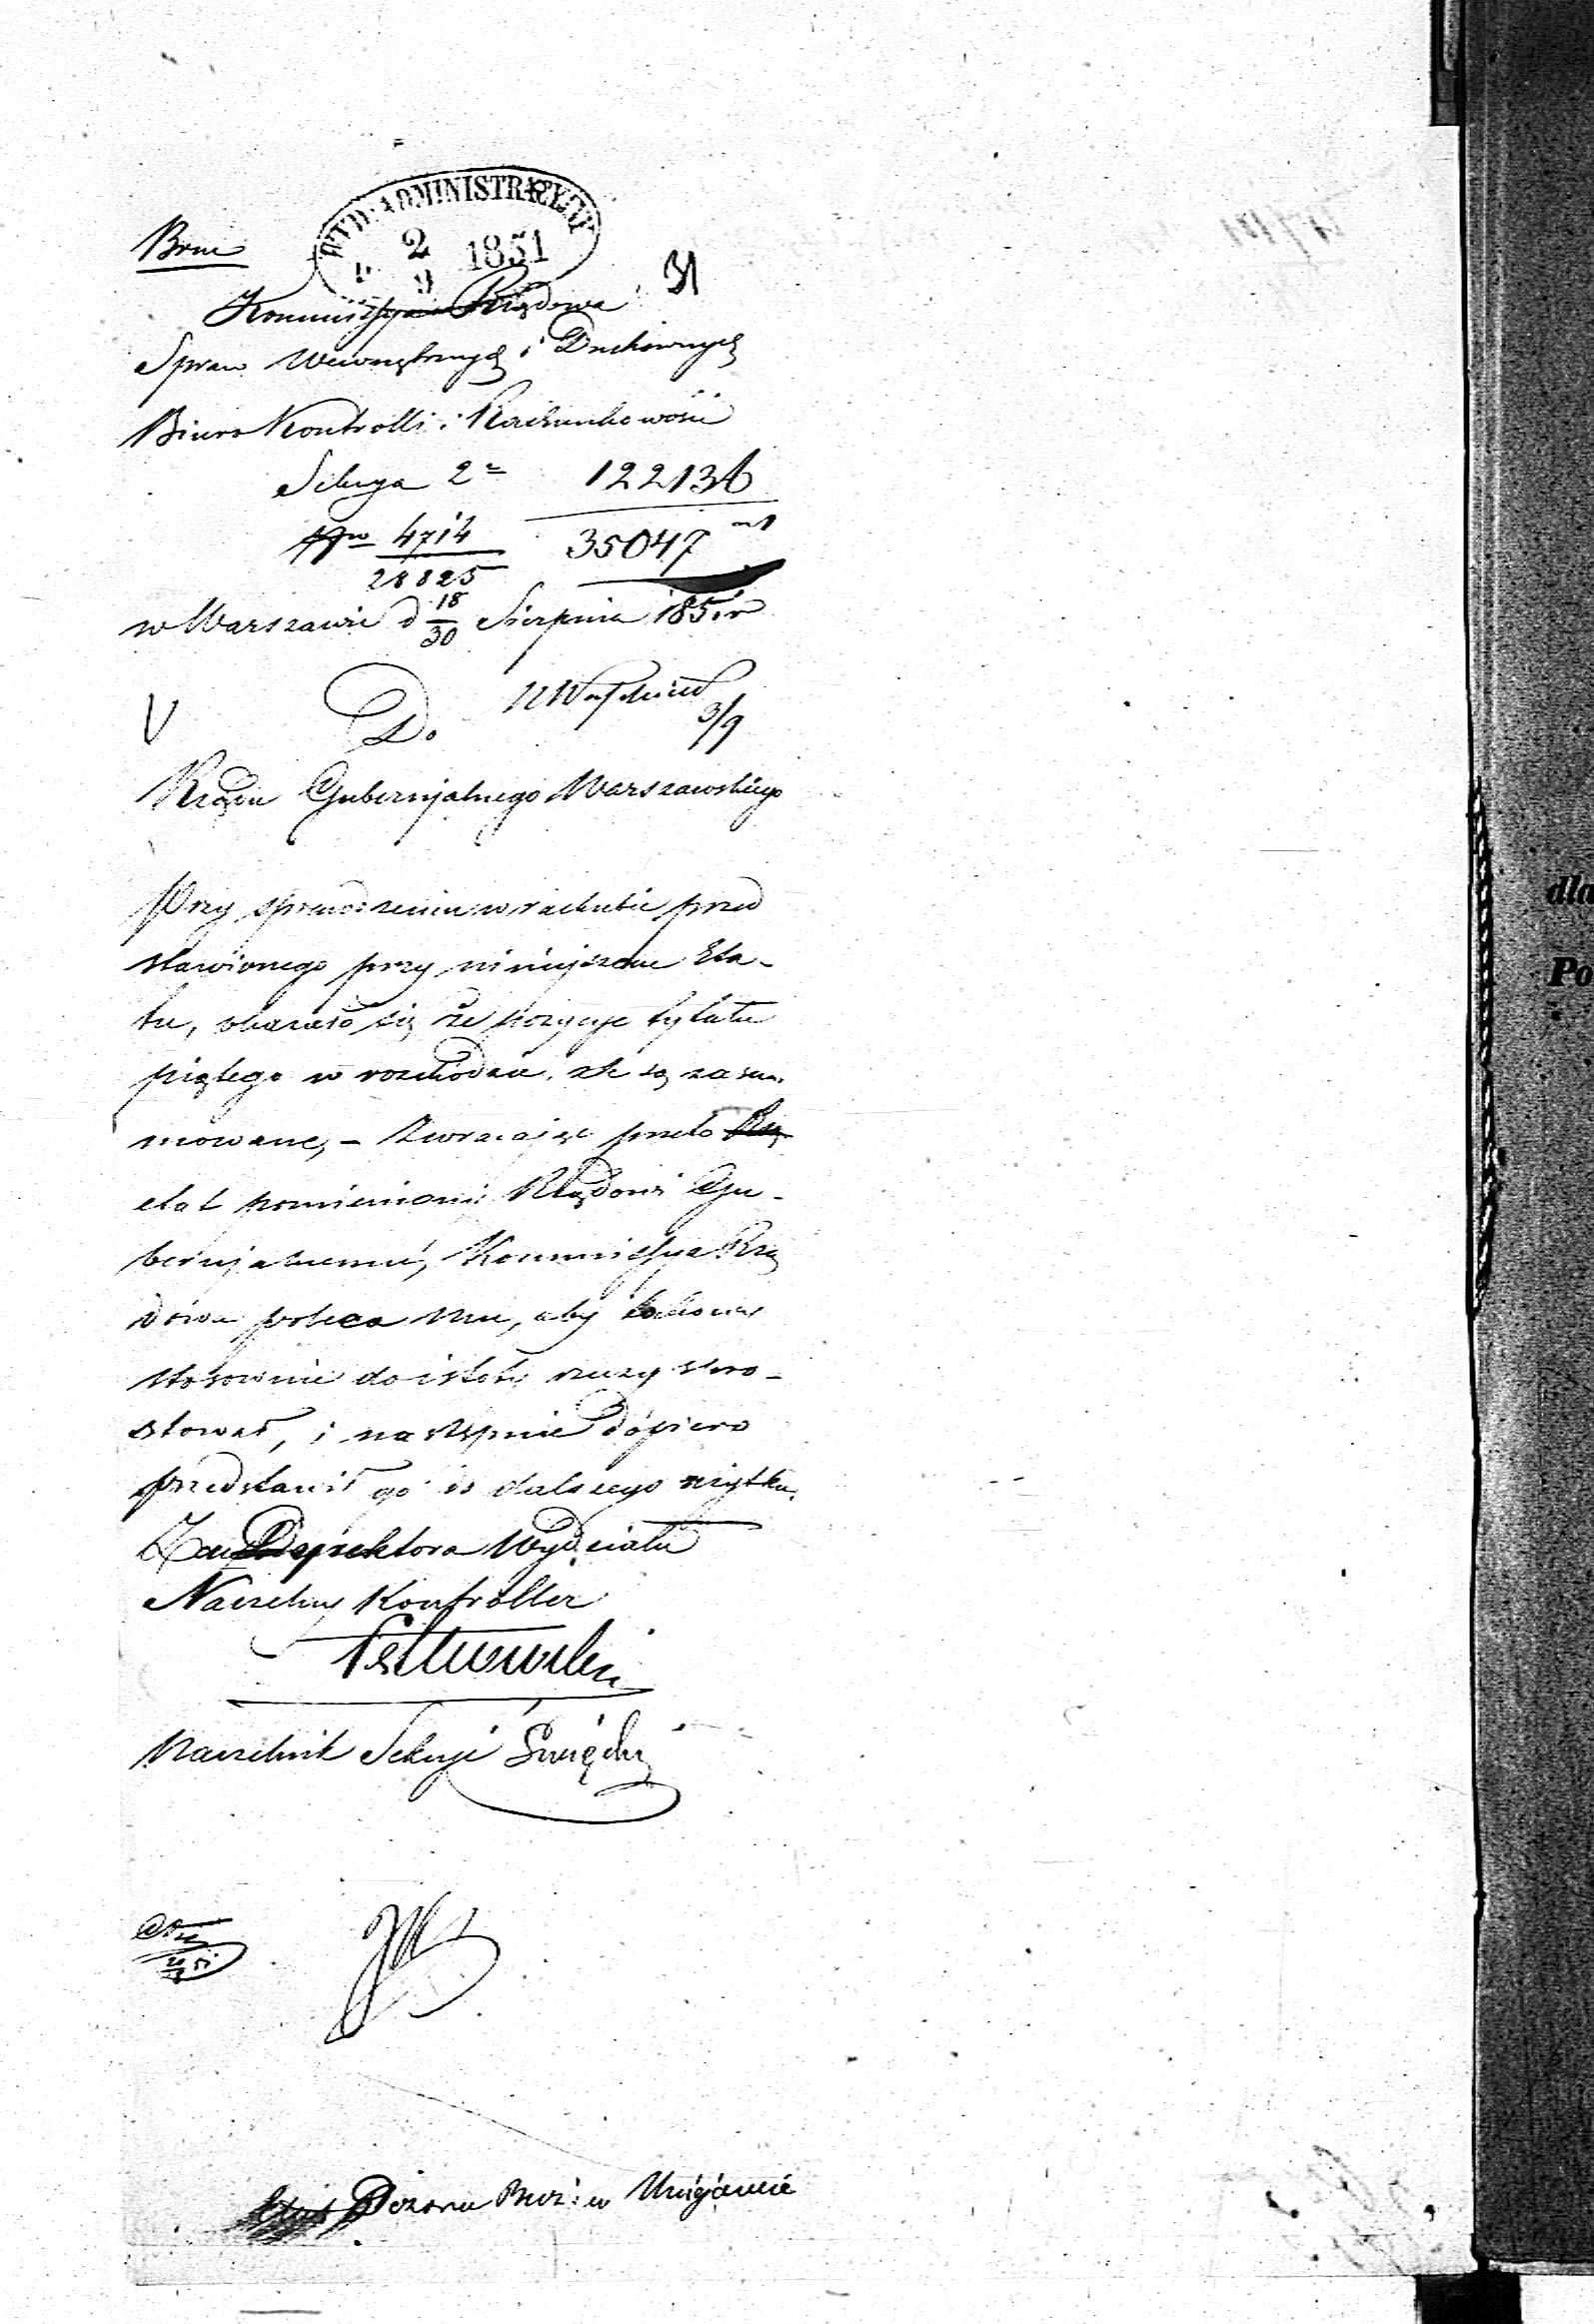 Brui
WYD: ADMINISTRACYJNY
2
9 1851
31
Kommissya Rządowa
Spraw Wewnętrznych i Duchownych
Biuro Kontrolli i Rachunkowości
Sekcya 2ª 122136
Nro 4714 35047
28825
w Warszawie d 18/30 Sierpnia 1851 r
Do
3/9
Rządu Gubernjalnego Warszawskiego
Przy sprawdzeniu w rachubie przed
stawionego przy niniejszem Eta-
tu, okazało się że pozycye tytułu
piątego w rozchodzie źle są zasum
mowane, – Zwracając przeto
etat pomieniony Rządowi Gu-
bernjalnemu, Kommissya Rzą
dowa poleca mu, aby takowy
stosownie do istoty rzeczy spro-
stował, i następnie dopiero
przedstawił go do dalszego użytku.
Za Dyrektora Wydziału
Naczelny Kontroller
Naczelnik Sekcyi Święcki
Etat Dozoru Boż: w Uniejowie
dla
Po